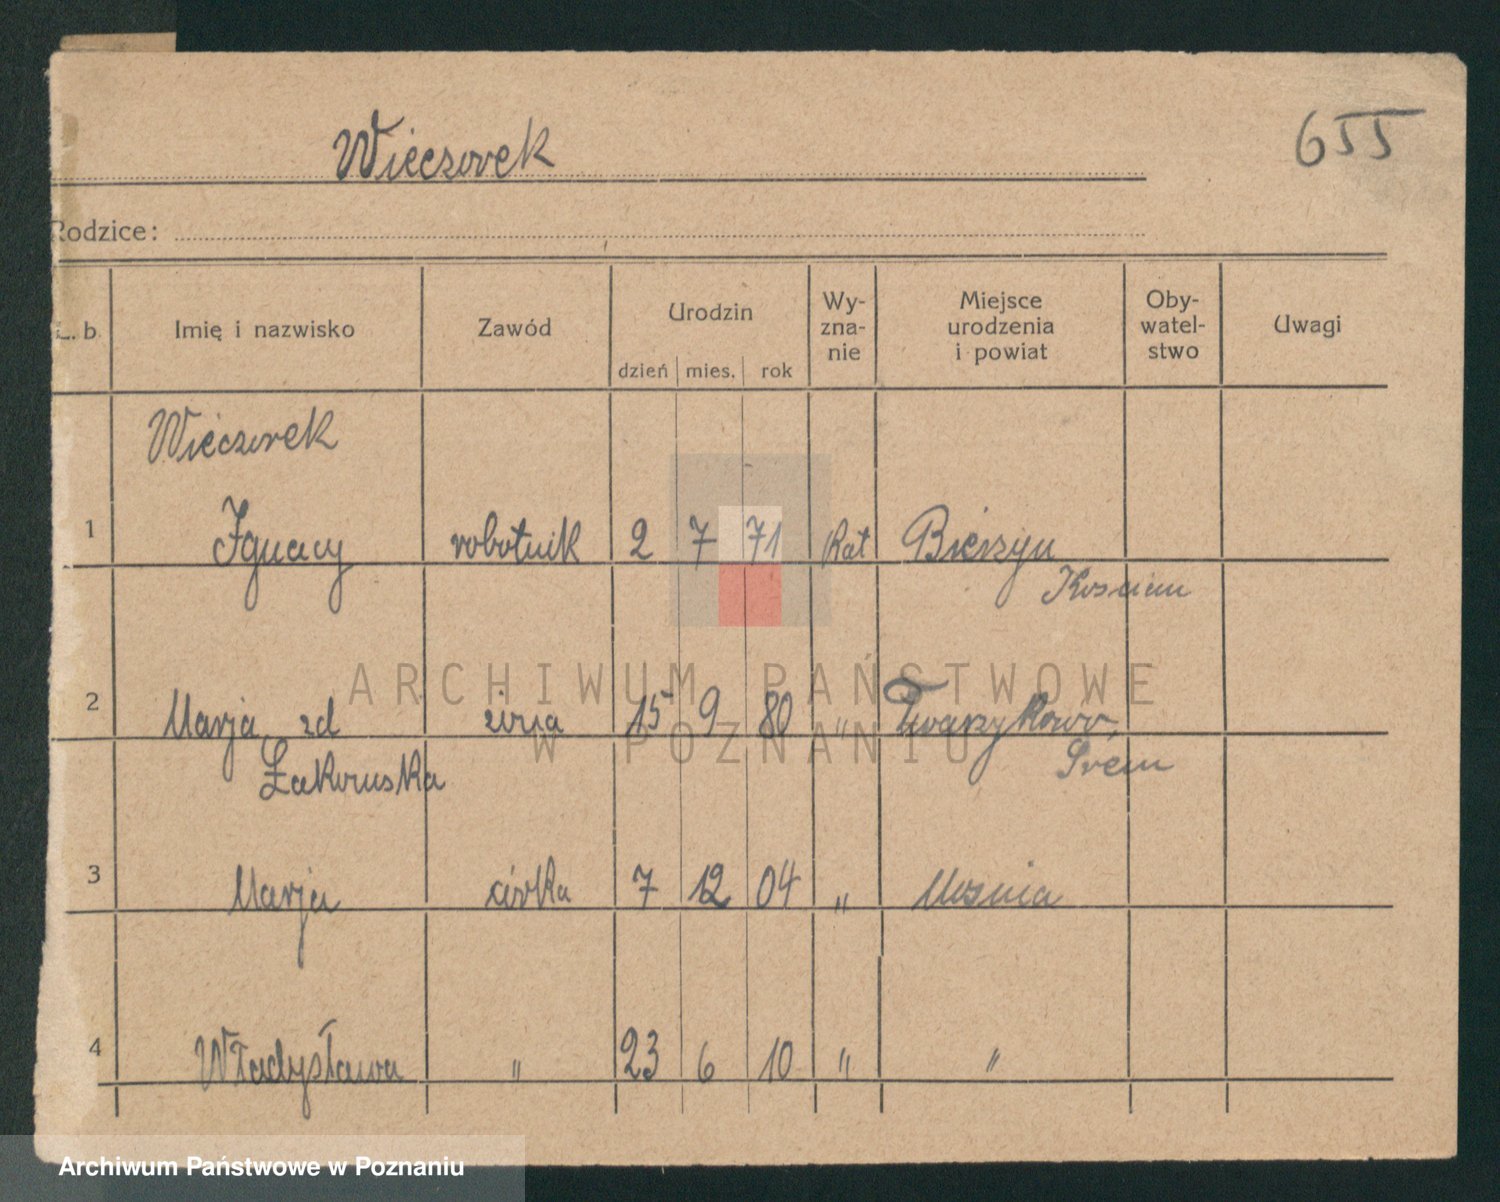 Wieczorek
655
Rodzice:
L. b.
Imię i nazwisko
Zawód
Urodzin
dzień mies. rok
Wy-
zna-
nie
Miejsce
urodzenia
i powiat
Oby-
watel-
stwo
Uwagi
Wieczorek
1 Ignacy robotnik 2 7 71 Kat Bieżyn
Kościan
2 Marja zd żona 15 9 80 "
Śrem
3 Marja córka 7 12 04 "
4 Władysława " 23 6 10 " "
ARCHIWUM PAŃSTWOWE
W POZNANIU
Archiwum Państwowe w Poznaniu